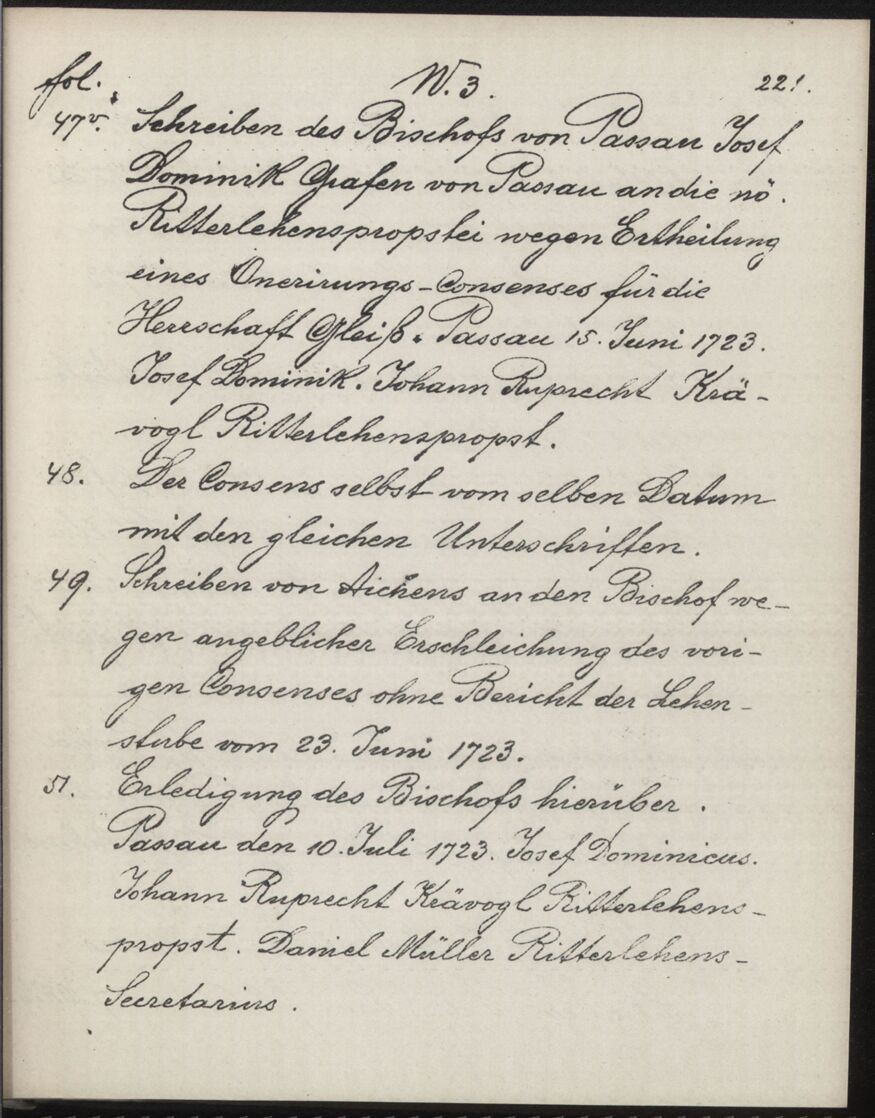 fol. W. 3. 221.
47v. Schreiben des Bischofs von Passau Josef
Dominik Grafen von Passau an die nö.
Ritterlehenspropstei wegen Ertheilung
eines Onerirungs-Consenses für die
Herrschaft Gleiß. Passau 15. Juni 1723.
Josef Dominik. Johann Ruprecht Krä-
vogl Ritterlehenspropst.
48. Der Consens selbst vom selben Datum
mit den gleichen Unterschriften.
49. Schreiben von Aichens an den Bischof we-
gen angeblicher Erschleichung des vori-
gen Consenses ohne Bericht der Lehen-
stube vom 23. Juni 1723.
51. Erledigung des Bischofs hierüber.
Passau den 10. Juli 1723. Josef Dominicus.
Johann Ruprecht Krävogl Ritterlehens-
propst. Daniel Müller Ritterlehens-
Secretarius.